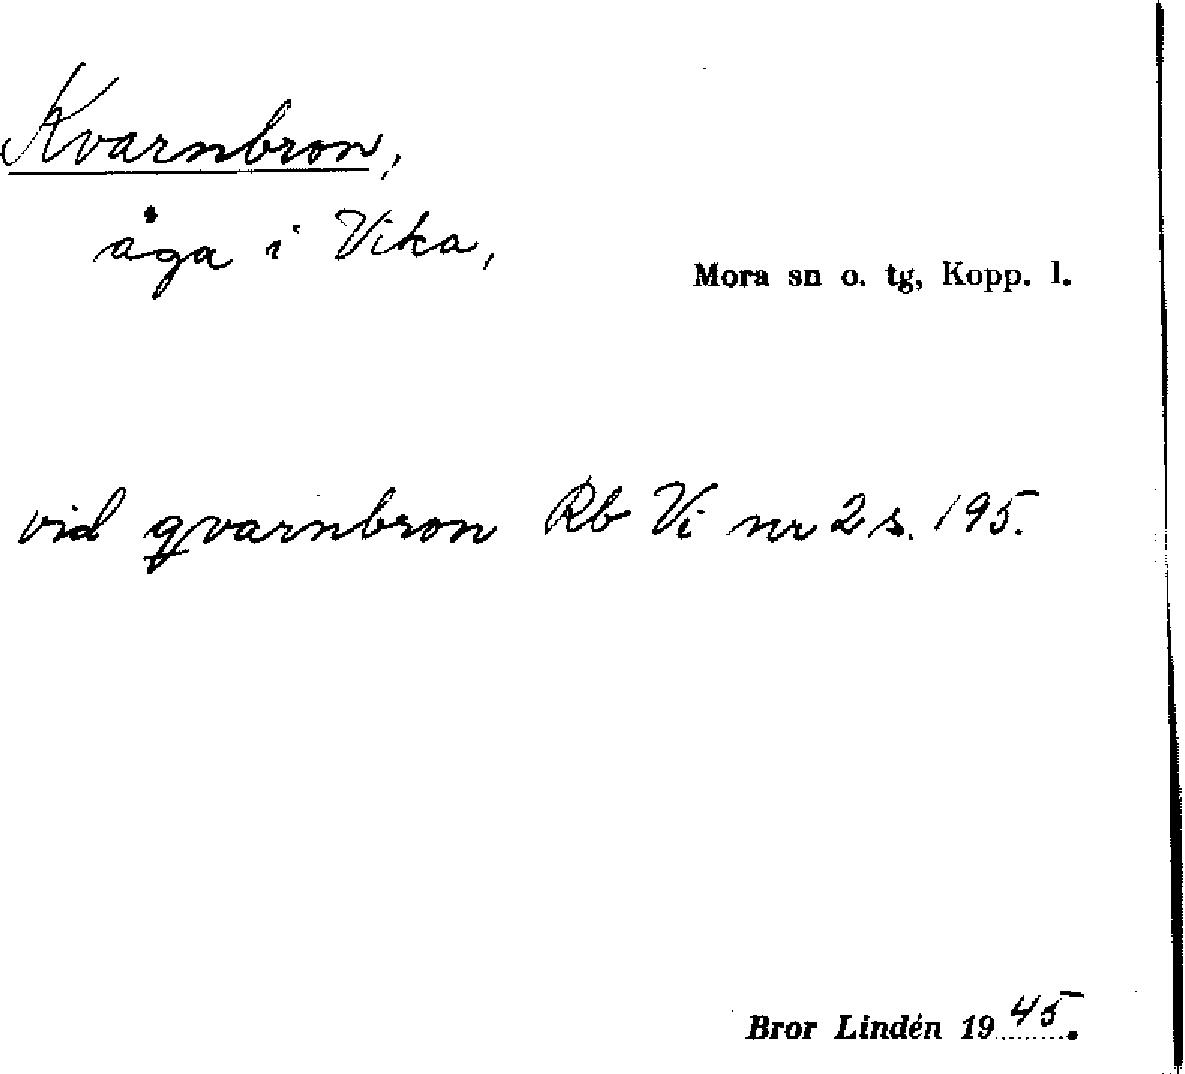 Kvarnbron,
åga i Vika,
Mora sn o. tg, Kopp. l.
vid qvarnbron Rb Vi nr 2 s. 195.
Bror Lindén 1945.